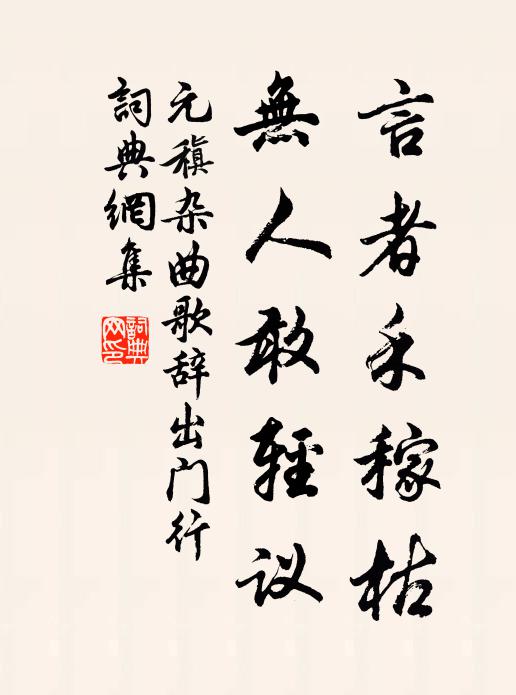 言者禾稼枯
無人敢輕议
元稹杂曲歌辞出门行
詞典網集
詞典网印